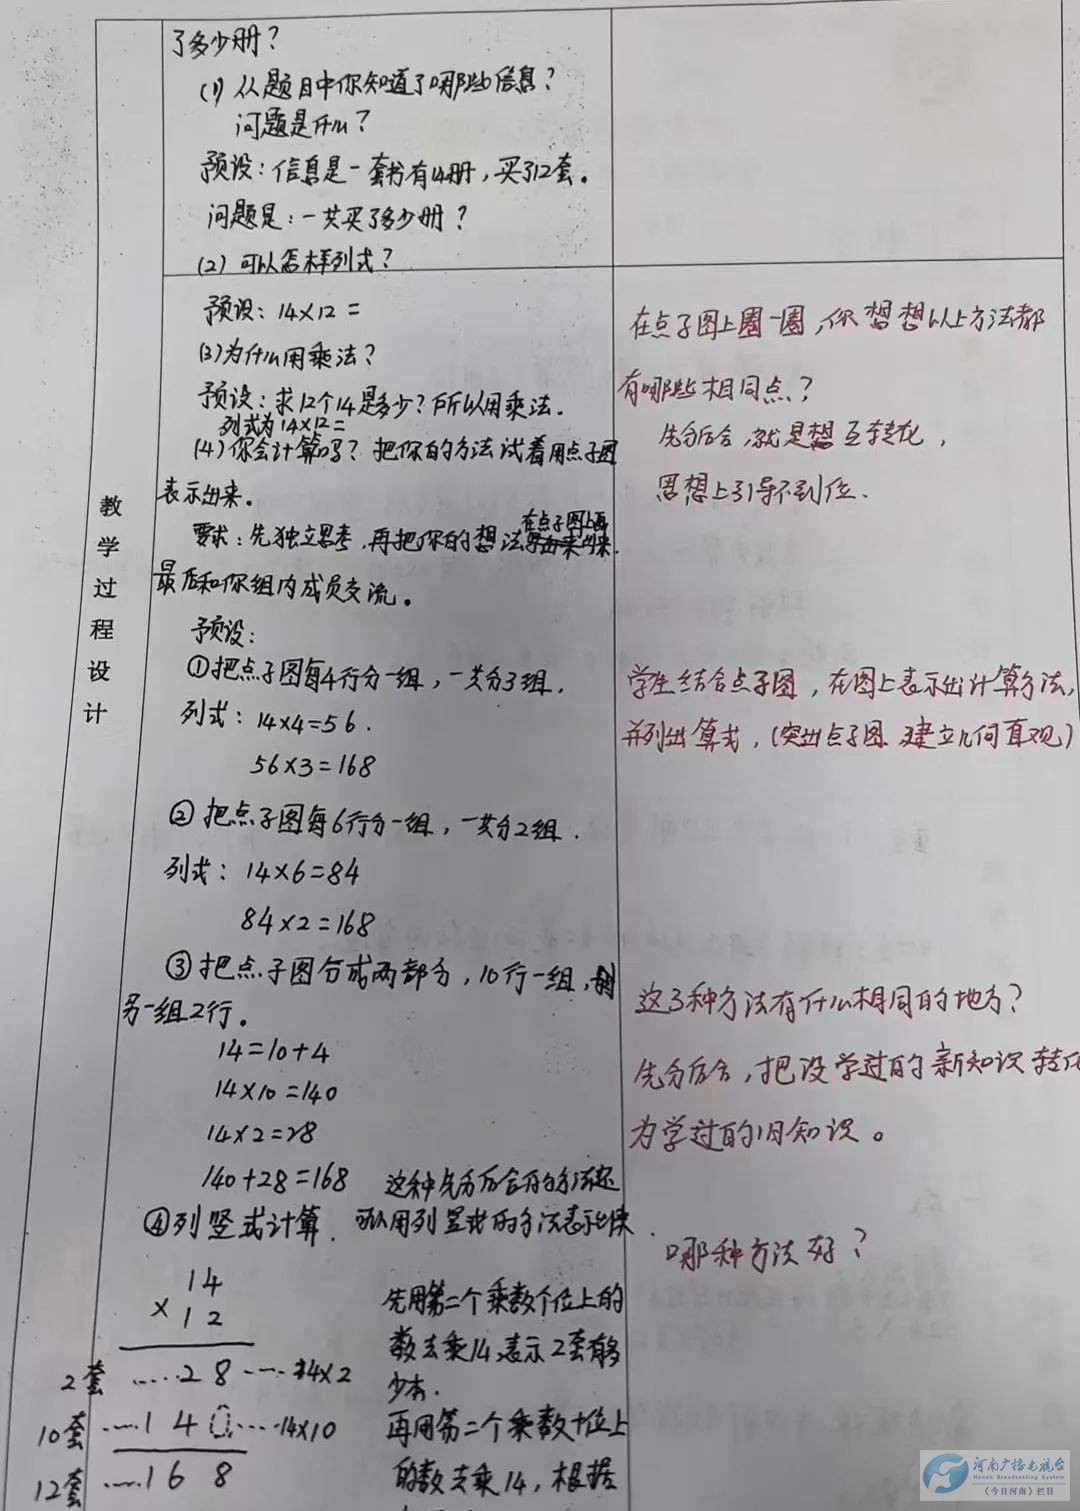 了多少册？
(1) 从题目中你知道了哪些信息？
问题是什么？
预设：信息是一套书有14册，买了12套。
问题是：一共买了多少册？
(2) 可以怎样列式？
预设：14×12＝
(3)为什么用乘法？
预设：求12个14是多少？所以用乘法.
列式为14×12＝
(4)你会计算吗？把你的方法试着用点子图
表示出来。
要求：先独立思考，再把你的想法在点子图上
最后和你组内成员交流。
预设：
①把点子图每4行分一组，一共分3组.
列式：14×4=56.
56×3=168
②把点子图每6行分一组，一共分2组.
列式：14×6=84
84×2=168
③把点子图分成两部分，10行一组，
另一组2行。
14=10+4
14×10=140
14×2=28
140+28=168 这种先分后合的方法还
④列竖式计算. 可以用列竖式的方法表示出来.
14
×12
2套 ……28……14×2
10套 ……140……14×10
12套 ……168
先用第二个乘数个位上的
数去乘14,表示2套有多
少本.
再用第二个乘数十位上
的数去乘14，根据
教学过程设计
在点子图上圈一圈,你想想以上方法都
有哪些相同点？
先分后合,就是想互转化，
思想上引导不到位.
学生结合点子图，在图上表示出计算方法,
并列出算式，(突出点子图 建立几何直观)
这3种方法有什么相同的地方？
先分后合，把没学过的新知识转化
为学过的旧知识。
哪种方法好？
河南广播电视台
Henan Broadcasting System
《今日河南》栏目